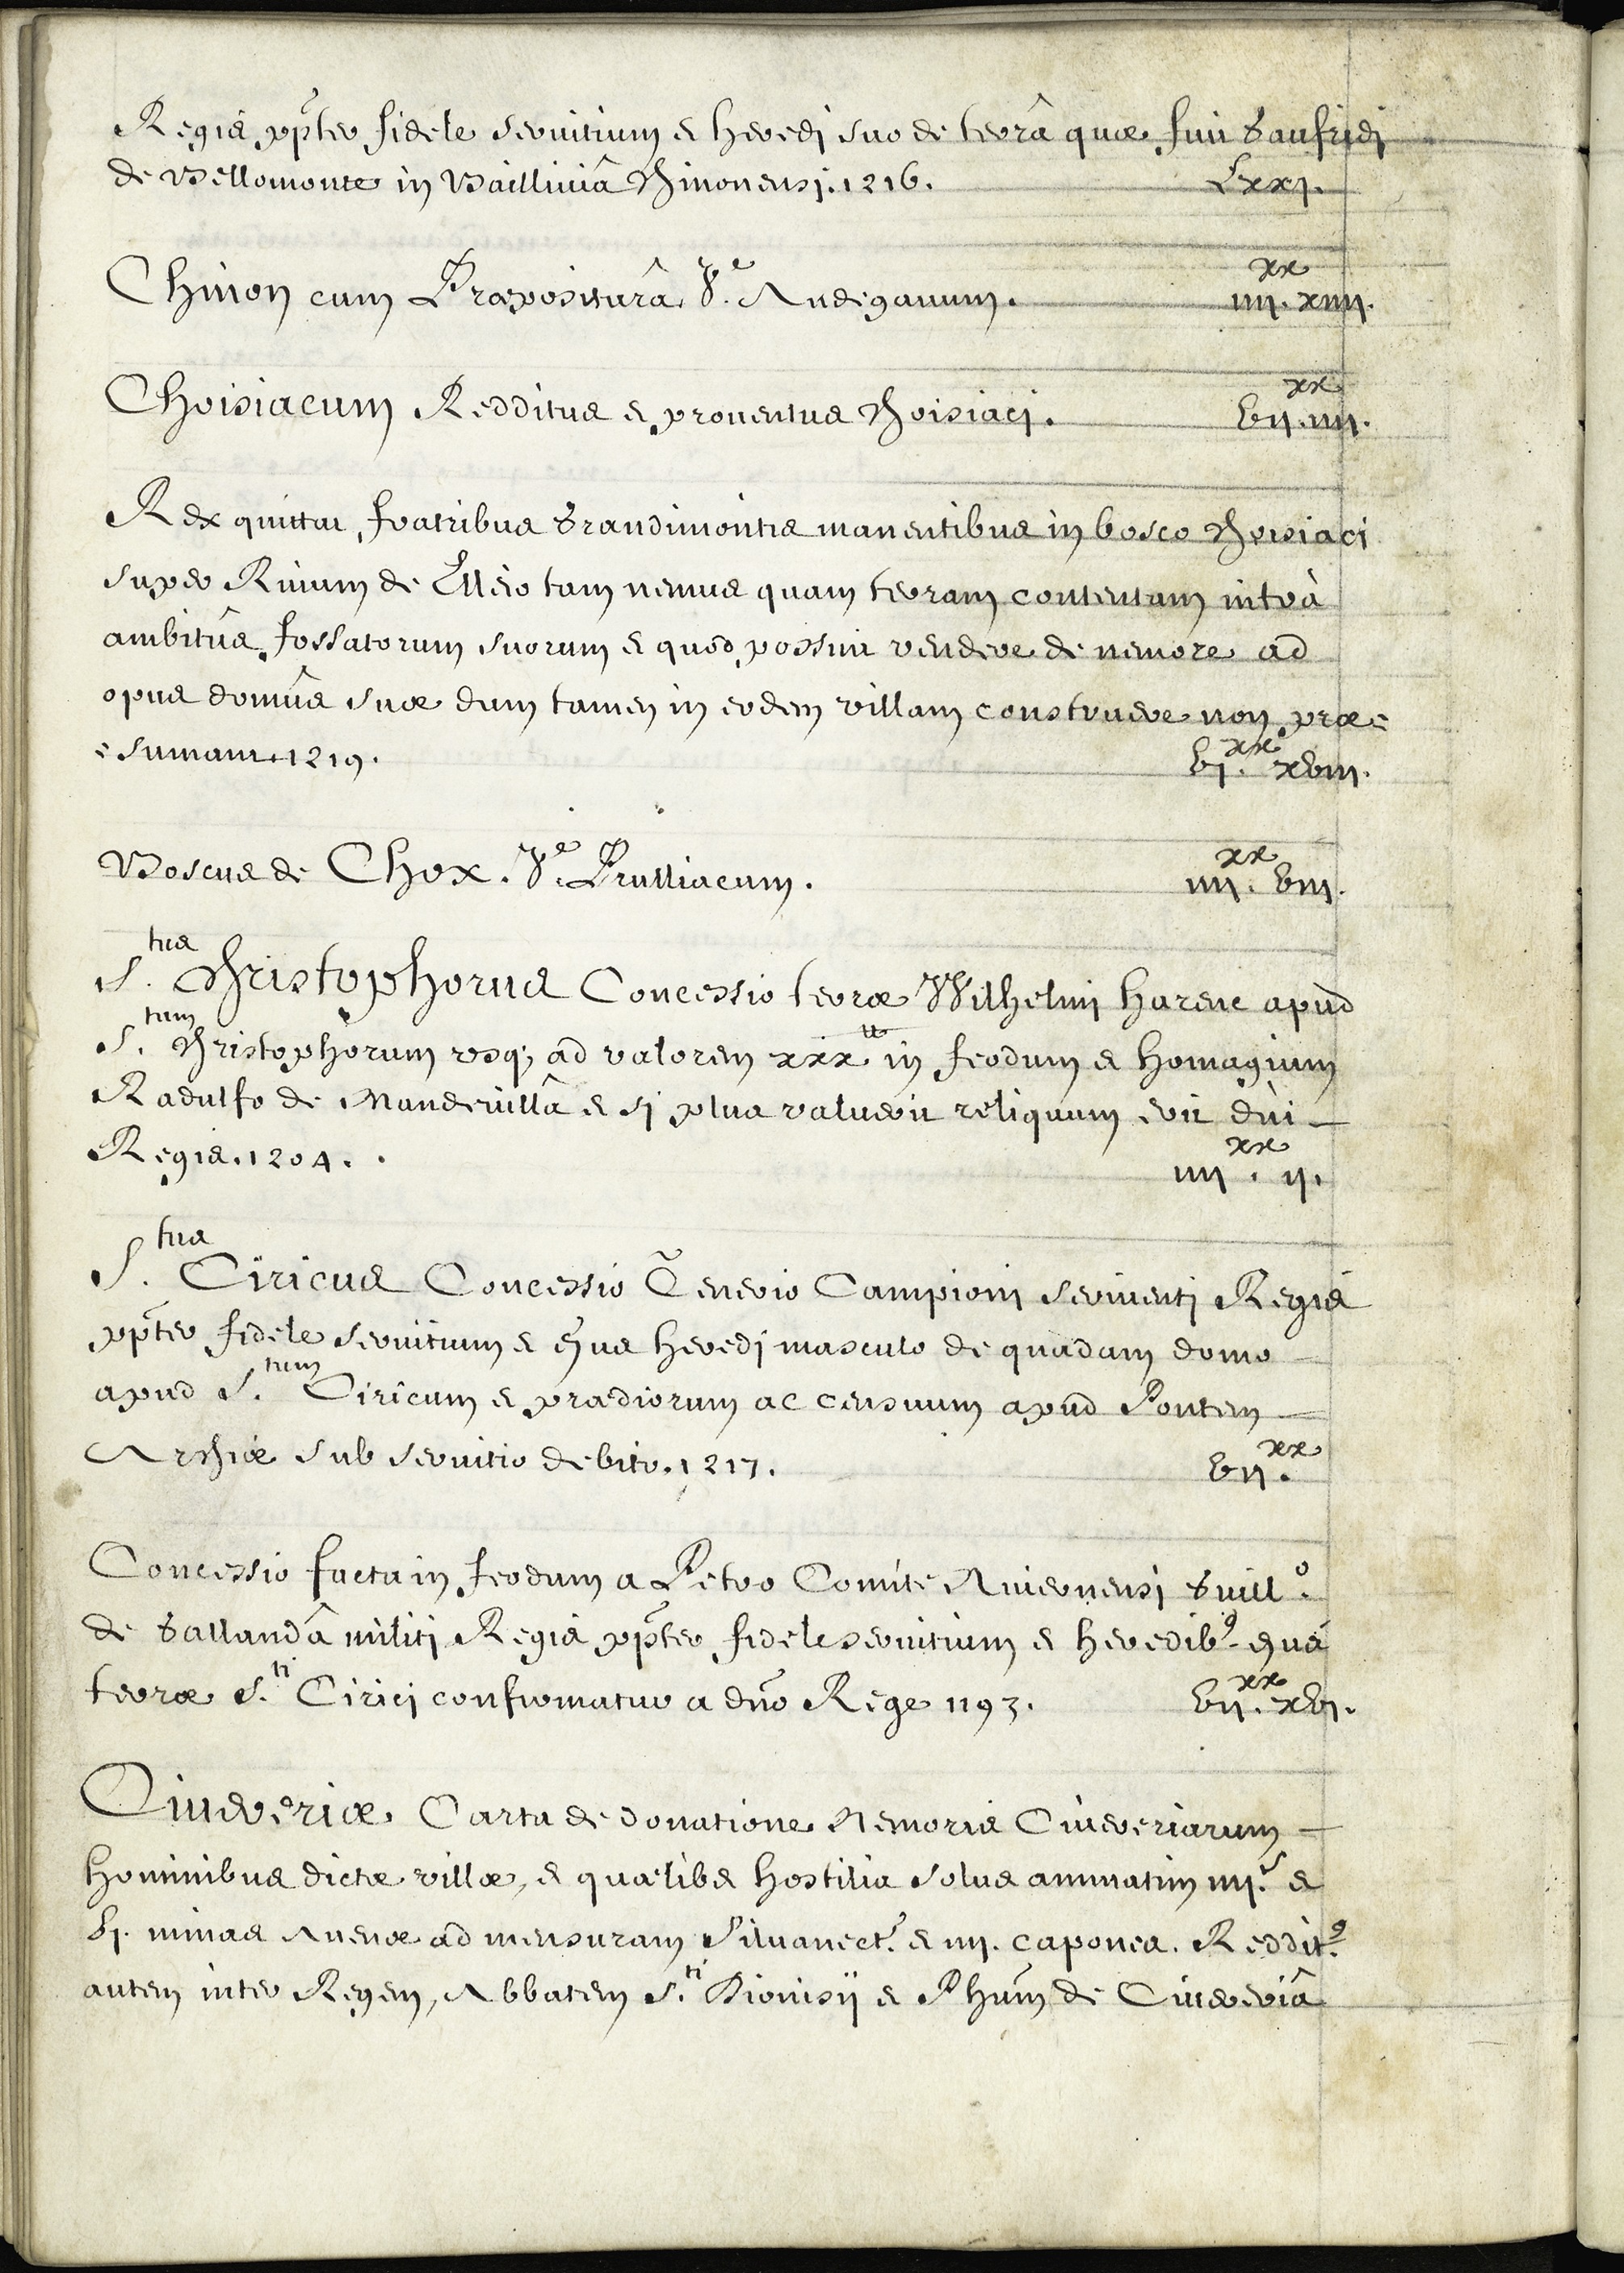 Regis, ppter fidele servitium et heredi suo de terrâ quæ fuit Gaufridi
de Bellomonte in Bailliviâ Chinonensi. 1216. Lxxi.
Chinon cum Præpositurâ. V.e Andegavum. iiii.xx xiiii.
Choisiacum Redditus et proventus Choisiaci. vii.xx iiii.
Rex quittat fratribus Grandimontis manentibus in bosco Choisiaci
super Rivum de tam nemus quam terram contentam intrà
ambitûs fossatorum suorum et quod possint vendere de nemore ad
opus domûs suæ dum tamen in eodem villam construere non præ=
=sumant. 1219. vi.xx xviii.
Boscus de Chox. V.e Prulliacum. iiii.xx viii.
S.tus Christophorus Concessio terræ Wilhelmi Harenc apud
S.tum Christophorum usq; ad valorem xxx tt in feodum et homagium
Radulfo de Mandevillâ et si plus valuerit reliquum erit dni
Regis. 1204. iiii.xx ii.
S.tus Ciricus Concessio Campioni servienti Regis
ppter fidele servitium et ejus heredi masculo de quâdam domo
apud S.tum Ciricum et prædiorum ac censuum apud Pontem
Archiæ sub servitio debito. 1217. vii.xx
Concessio facta in feodum a Petro Comite Nivernensi Guill.o
de Gallandâ militi Regis ppter fidele servitium et heredib9 ejus
terræ S.ti Cirici confirmatur a dno Rege 1193. vii.xx xvi.
Civeriæ Carta de donatione Nemoris Civeriarum
hominibus dictæ villæ, et quælibet hostilia solvet annuatim iii.s et
vi. minas Avenæ ad mensuram Silvanect. et iii. capones. Reddit9
autem inter Regem, Abbatem S.ti Dionisii et Phum de Civeriâ